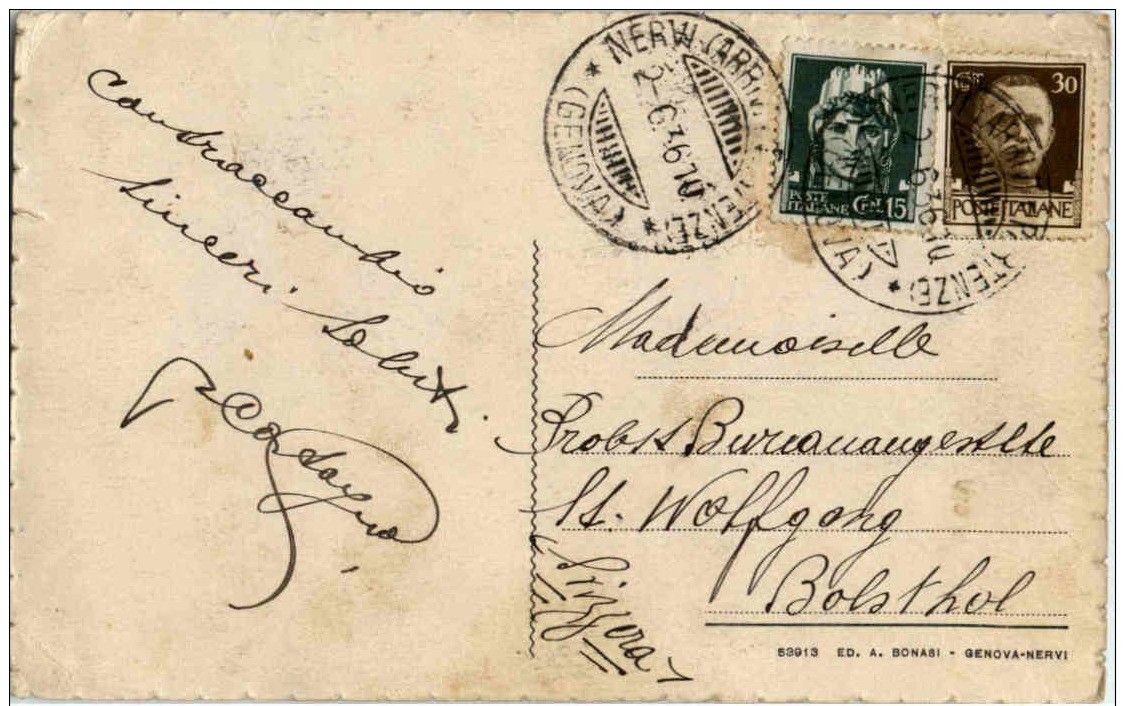 contraccambio
sinceri saluti
NERVI (ARRIVI E PARTENZE)
2-6 36 10
* (GENOVA) *
POSTE ITALIANE Cent. 15
Cent. 30
POSTE ITALIANE
Mademoiselle
Probst Bureauangestellte
St. Wolfgang
Bolsthol
(Svizzera)
53913 ED. A. BONASI - GENOVA-NERVI